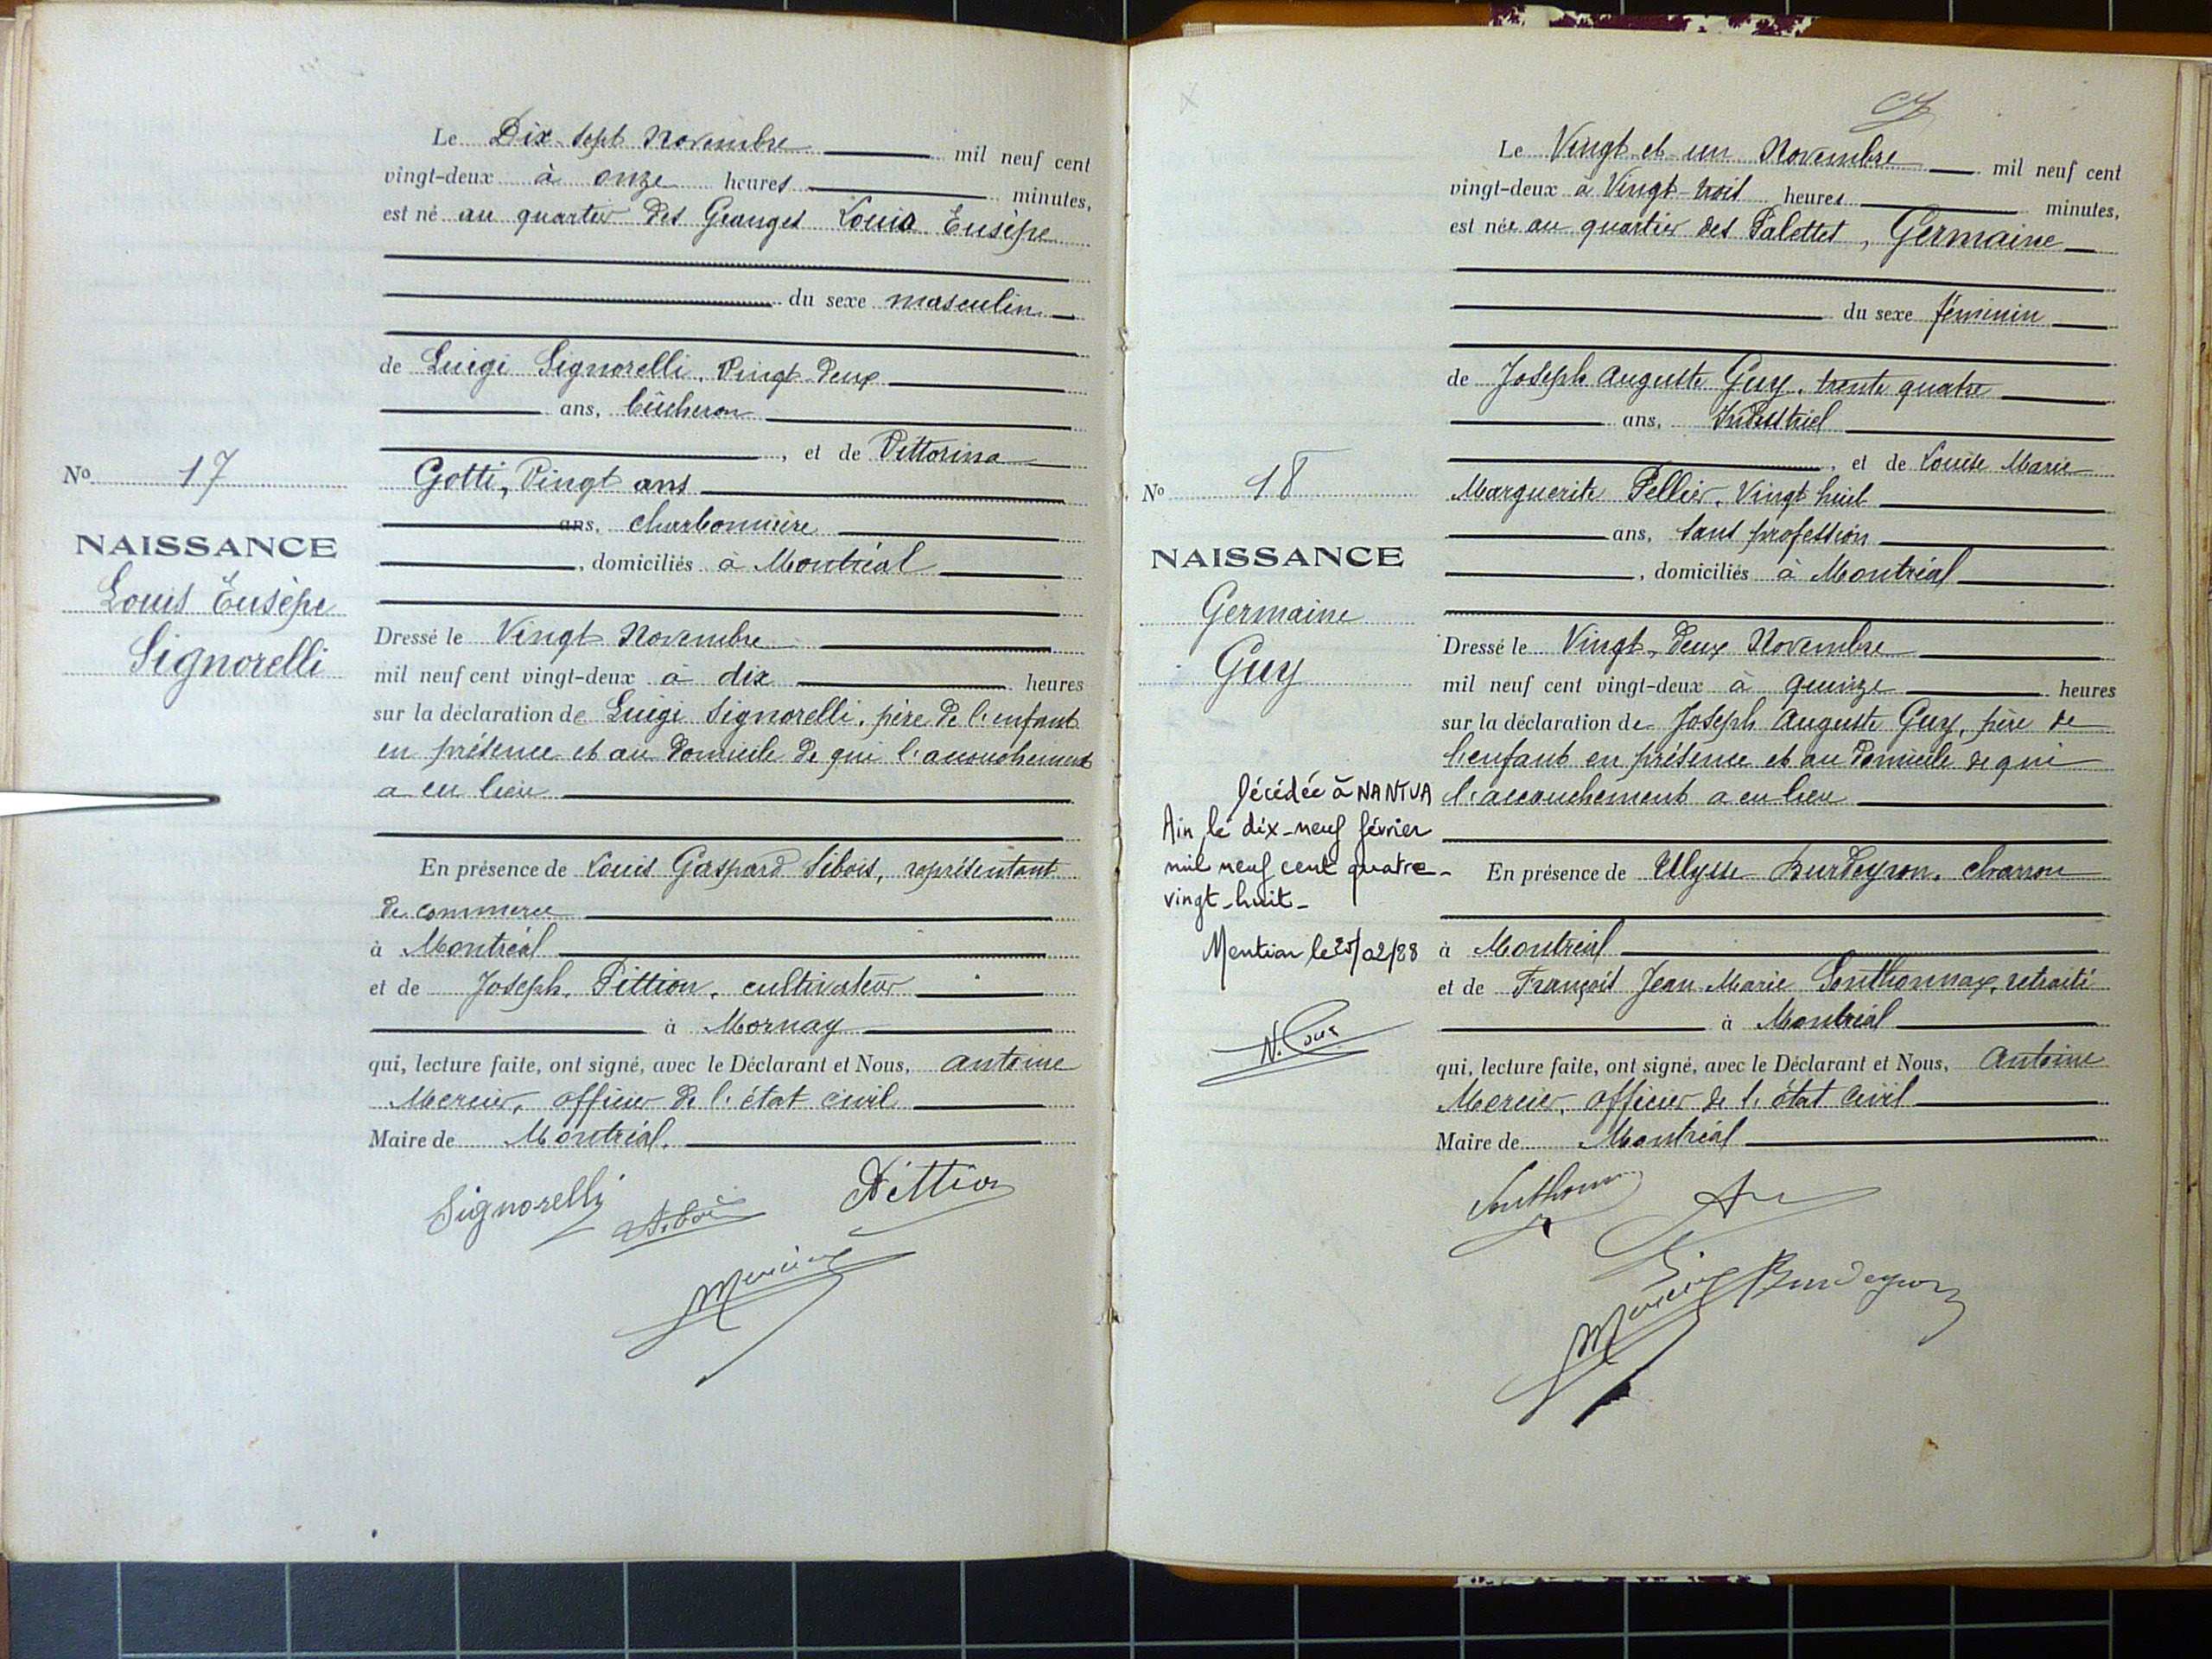 Le Dix-sept Novembre mil neuf cent
vingt-deux à onze heures minutes,
est né au quartier des Granges Louis Eusèpe
du sexe masculin
de Luigi Signorelli, Vingt-deux
ans, bûcheron
, et de Vittorina
Gotti, Vingt ans
ans, charbonnière
, domiciliés à Montréal
No 17
NAISSANCE
Louis Eusèpe
Signorelli
Dressé le Vingt Novembre
mil neuf cent vingt-deux à dix heures
sur la déclaration de Luigi Signorelli, père de l'enfant
en présence et au domicile de qui l'accouchement
a eu lieu
En présence de Louis Gaspard Sibois, représentant
de commerce
à Montréal
et de Joseph Pittion, cultivateur
à Mornay
qui, lecture faite, ont signé, avec le Déclarant et Nous, Antoine
Mercier, officier de l'état civil
Maire de Montréal.
Signorelli
Sibois
Pittion
Mercier
Le Vingt et un Novembre mil neuf cent
vingt-deux à Vingt-trois heures minutes,
est née au quartier des Palettes, Germaine
du sexe féminin
de Joseph Auguste Guy, trente quatre
ans, Industriel
, et de Louise Marie
Marguerite Pellier, Vingt huit
ans, sans profession
, domiciliés à Montréal
No 18
NAISSANCE
Germaine
Guy
Dressé le Vingt-deux Novembre
mil neuf cent vingt-deux à quinze heures
sur la déclaration de Joseph Auguste Guy, père de
l'enfant en présence et au domicile de qui
l'accouchement a eu lieu
Décédée à NANTUA
Ain, le dix-neuf février
mil neuf cent quatre-
vingt-huit-
Mention le 25/02/88
En présence de Ulysse Burdeyron, charron
à Montréal
et de François Jean-Marie Sonthonnax, retraité
à Montréal
qui, lecture faite, ont signé, avec le Déclarant et Nous, Antoine
Mercier, officier de l'état civil
Maire de Montréal
Sonthonnax
Burdeyron
Mercier